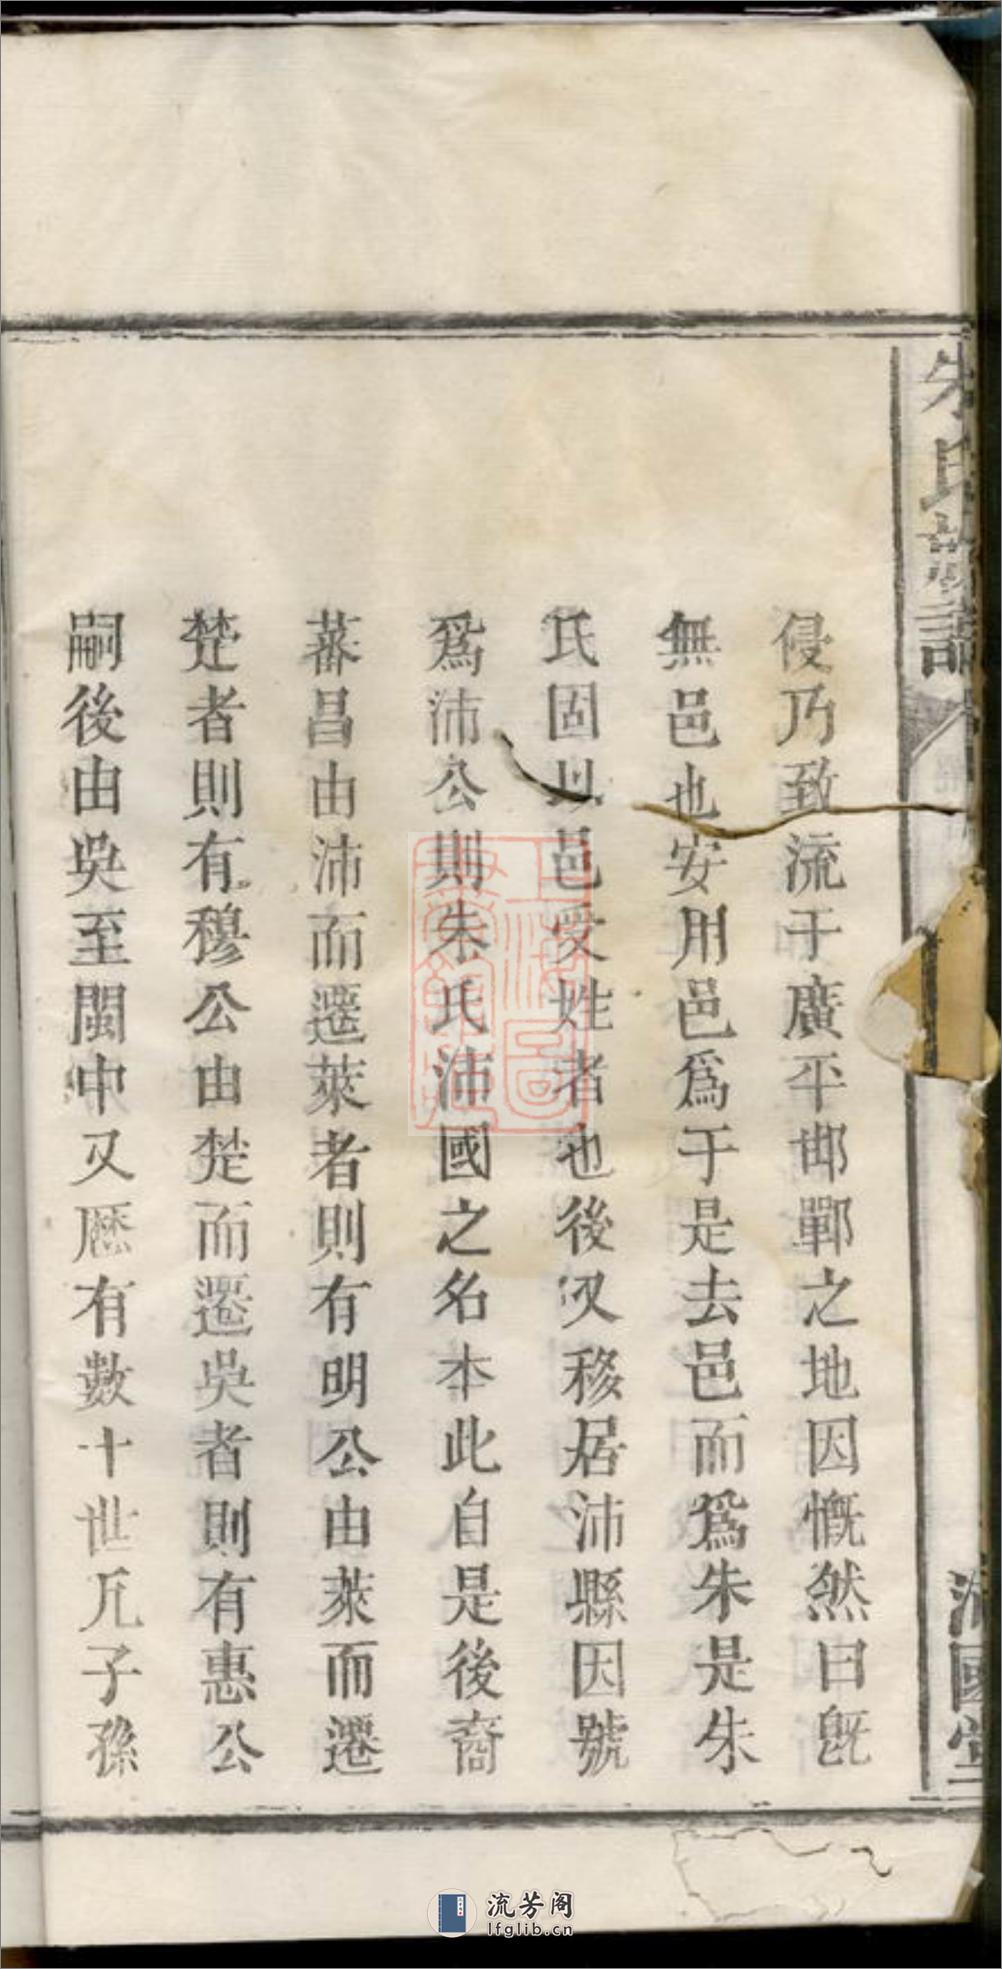 侵乃致流于廣平邯鄲之地因慨然曰旣
無邑也安用邑爲于是去邑而爲朱是朱
氏固以邑受姓者也後又移居沛縣因號
爲沛公則朱氏沛國之名本此自是後裔
蕃昌由沛而遷萊者則有明公由萊而遷
楚者則有穆公由楚而遷吳者則有惠公
嗣後由吳至閩中又歷有數十世凡子孫
朱氏族譜
沛國堂
上海圖書館藏
流芳阁
lfglib.cn